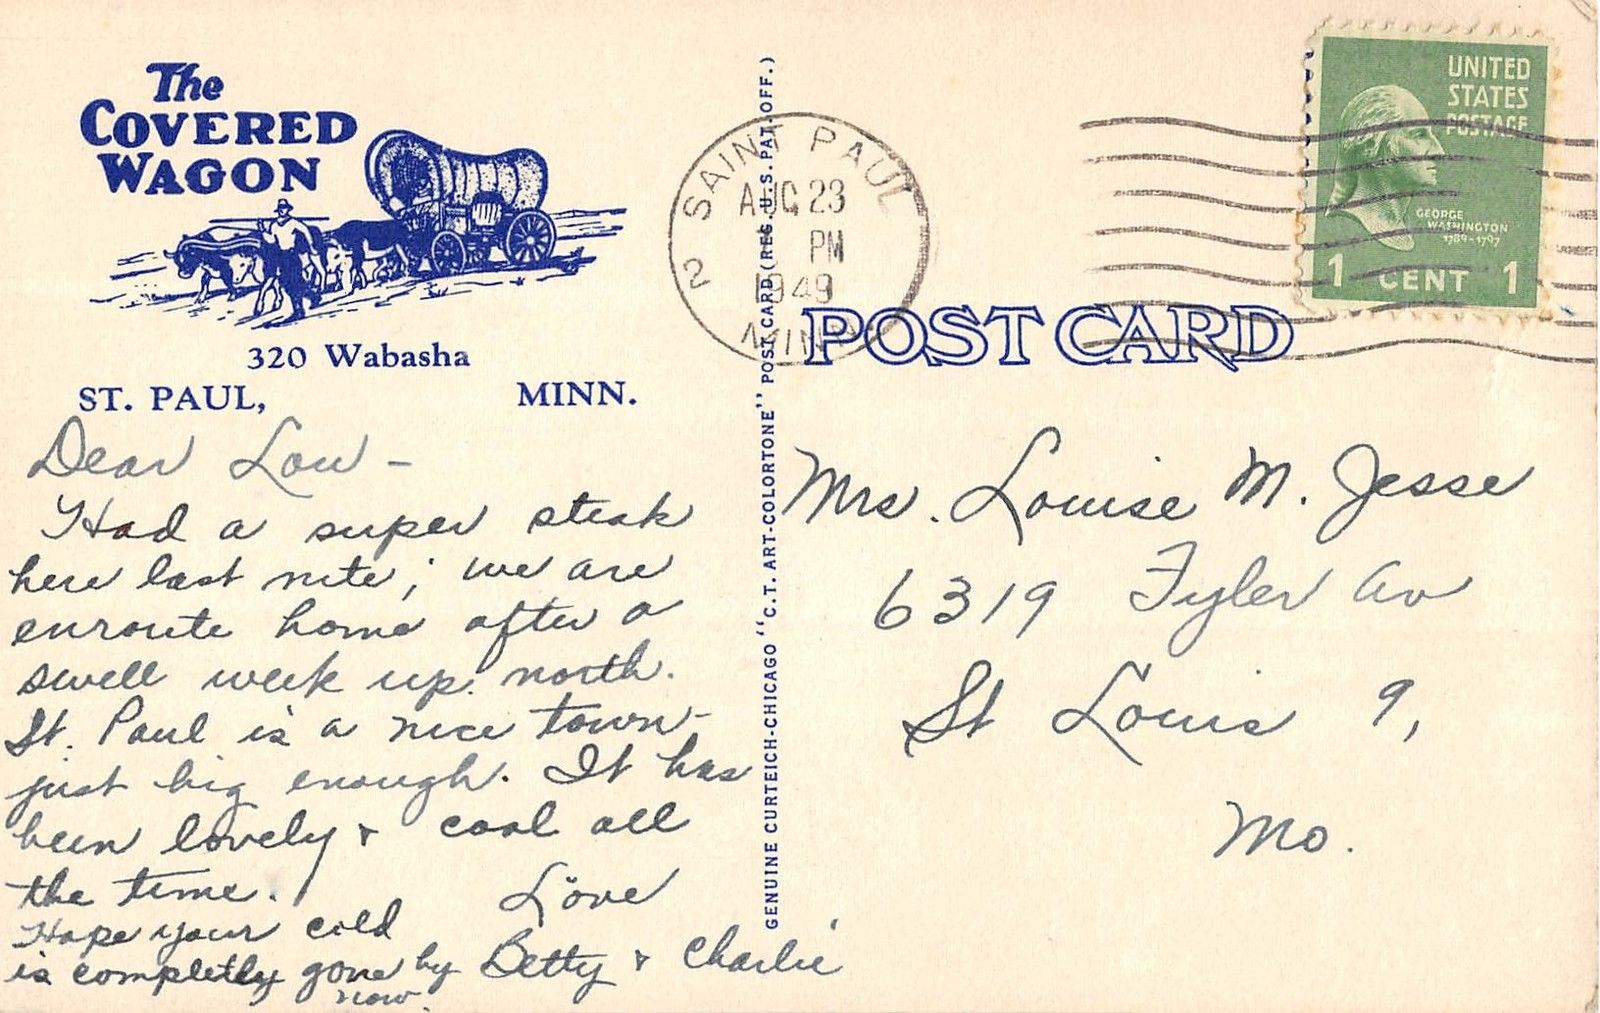 The
COVERED
WAGON
320 Wabasha
ST. PAUL, MINN.
Dear Lou -
Had a super steak
here last nite; we are
enroute home after a
swell week up north.
St. Paul is a nice town -
just big enough. It has
been lovely & cool all
the time.
Love
Hope your cold
is completly gone by
now.
Betty & Charlie
GENUINE CURTEICH-CHICAGO "C.T. ART-COLORTONE" POST CARD (REG. U.S. PAT. OFF.)
SAINT PAUL
AUG 23
PM
1949
2
MINN
UNITED
STATES
POSTAGE
GEORGE
WASHINGTON
1789-1797
1 CENT 1
POST CARD
Mrs. Louise M. Jesse
6319 Tyler Av
St Louis 9,
Mo.